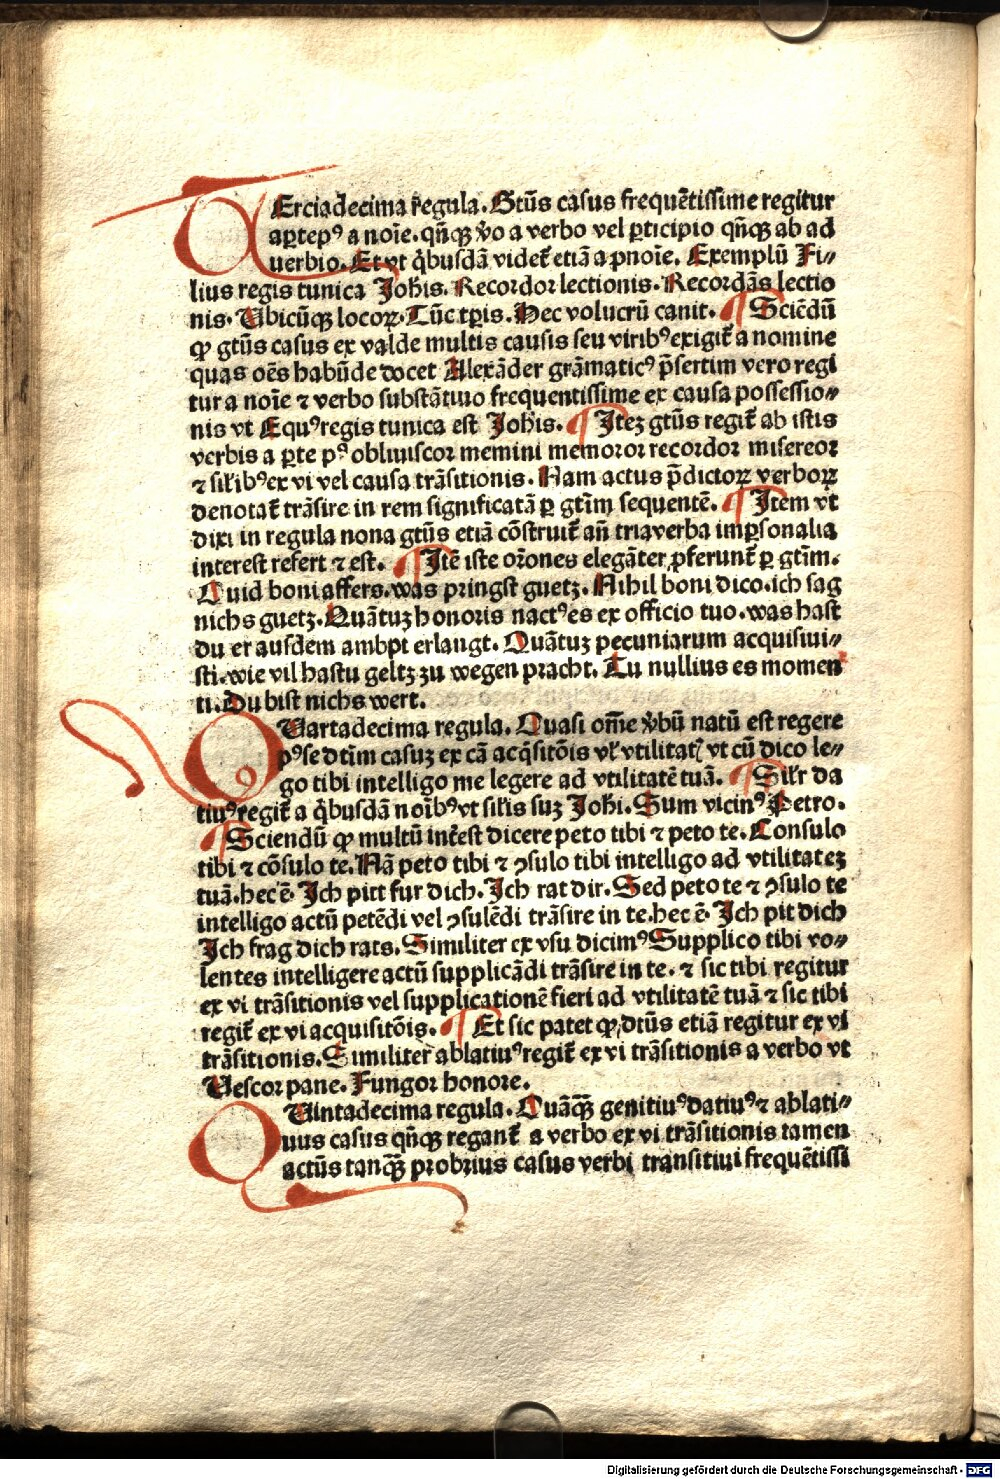 TErciadecima regula. Gtūs casus frequētissime regitur
a ꝑte pꝰ a noīe. qn̄qꝫ v̊o a verbo vel ꝑticipio qn̄qꝫ ab ad
uerbio. Et vt q̇busdā videt̃ etiā a pnoīe. Exemplū Fi⸗
lius regis tunica Joh̄is. Recordor lectionis. Recordās lectio
nis. Ubicūqꝫ locoꝝ. Tūc tꝑis. Hec volucrū canit. ¶ Sciēdū
ꝙ gtūs casus ex valde multis causis seu viribꝰ exigit̃ a nomine
quas oēs habūde docet Alexāder grāmaticꝰ p̄sertim vero regi
tur a noīe ⁊ verbo substātiuo frequentissime ex causa possessio⸗
nis vt Equꝰ regis tunica est Joh̄is. ¶ Iteꝫ gtūs regit̃ ab istis
verbis a ꝑte pꝰ obliuiscor memini memoror recordor misereor
⁊ sil̄ibꝰ ex vi vel causa trāsitionis. Nam actus p̄dictoꝝ verboꝝ
denotat̃ trāsire in rem significatā ꝑ gtīm sequentē. ¶ Item vt
dixi in regula nona gtūs etiā cōstruit̃ an̄ tria verba imꝑsonalia
interest refert ⁊ est. ¶ Itē iste orōnes elegāter ꝓferunt̃ ꝑ gtīm.
Quid boni affers. was pringst guetz. Nihil boni dico. ich sag
nichs guetz. Quātuꝫ honoris nactꝰ es ex officio tuo. was hast
du er aus dem ambpt erlangt. Quātuꝫ pecuniarum acquisiui⸗
sti. wie vil hastu geltz zu wegen pracht. Tu nullius es momen
ti. Du bist nichs wert.
QUartadecima regula. Quasi om̄e v̊bū natū est regere
pꝰ se dtīm casuꝫ ex cā acq̇sitōis vl̛ vtilitatꝭ vt cū dico le⸗
go tibi intelligo me legere ad vtilitatē tuā. ¶ Sil̛r da
tiuꝰ regit̃ a q̇busdā noībꝰ vt sil̛is suꝫ Joh̄i. Sum vicinꝰ Petro.
¶ Sciendū ꝙ multū int̃est dicere peto tibi ⁊ peto te. Consulo
tibi ⁊ cōsulo te. Nā peto tibi ⁊ ꝯsulo tibi intelligo ad vtilitateꝫ
tuā. hec ē. Ich pitt fur dich. Ich rat dir. Sed peto te ⁊ ꝯsulo te
intelligo actū petēdi vel ꝯsulēdi trāsire in te. hec ē. Ich pit dich
Ich frag dich rats. Similiter ex vsu dicimꝰ Supplico tibi vo⸗
lentes intelligere actū supplicādi trāsire in te. ⁊ sic tibi regitur
ex vi trāsitionis vel supplicationē fieri ad vtilitatē tuā ⁊ sic tibi
regit̃ ex vi acquisitōis. ¶ Et sic patet ꝙ, dtūs etiā regitur ex vi
trāsitionis. Similiter ablatiuꝰ regit̃ ex vi trāsitionis a verbo vt
Uescor pane. Fungor honore.
QUintadecima regula. Quāqꝫ̄ genitiuꝰ datiuꝰ ⁊ ablati⸗
uus casus qn̄qꝫ regant̃ a verbo ex vi trāsitionis tamen
actūs tanqꝫ̄ probrius casus verbi transitiui frequētissi
Digitalisierung gefördert durch die Deutsche Forschungsgemeinschaft - DFG